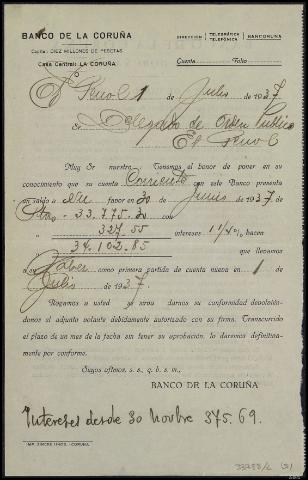 BANCO DE LA CORUÑA
Capital: DIEZ MILLONES DE PESETAS
Casa Central: LA CORUÑA
DIRECCIÓN TELEGRÁFICA TELEFÓNICA BANCORUÑA
Cuenta Folio
Ferrol 1 de Julio de 1937
Sr. Delegado de Orden Público
El Ferrol
Muy Sr. nuestro: Tenemos el honor de poner en
conocimiento que su cuenta Corriente con este Banco presenta
un saldo a su favor en 30 de Junio de 1937 de
Ptas. 33.775.20
" 327.55 intereses 1 1/4% hacen
34.102.85 que llevamos
Haber como primera partida de cuenta nueva en 1 de
Julio de 1937.
Rogamos a usted se sirva darnos su conformidad devolvién-
donos el adjunto volante debidamente autorizado con su firma. Transcurrido
el plazo de un mes de la fecha sin tener su aprobación, lo daremos definitiva-
mente por conforme.
Suyos aftmos. s. s., q. b. s. m.,
BANCO DE LA CORUÑA
Intereses desde 30 Novbre 375.69.